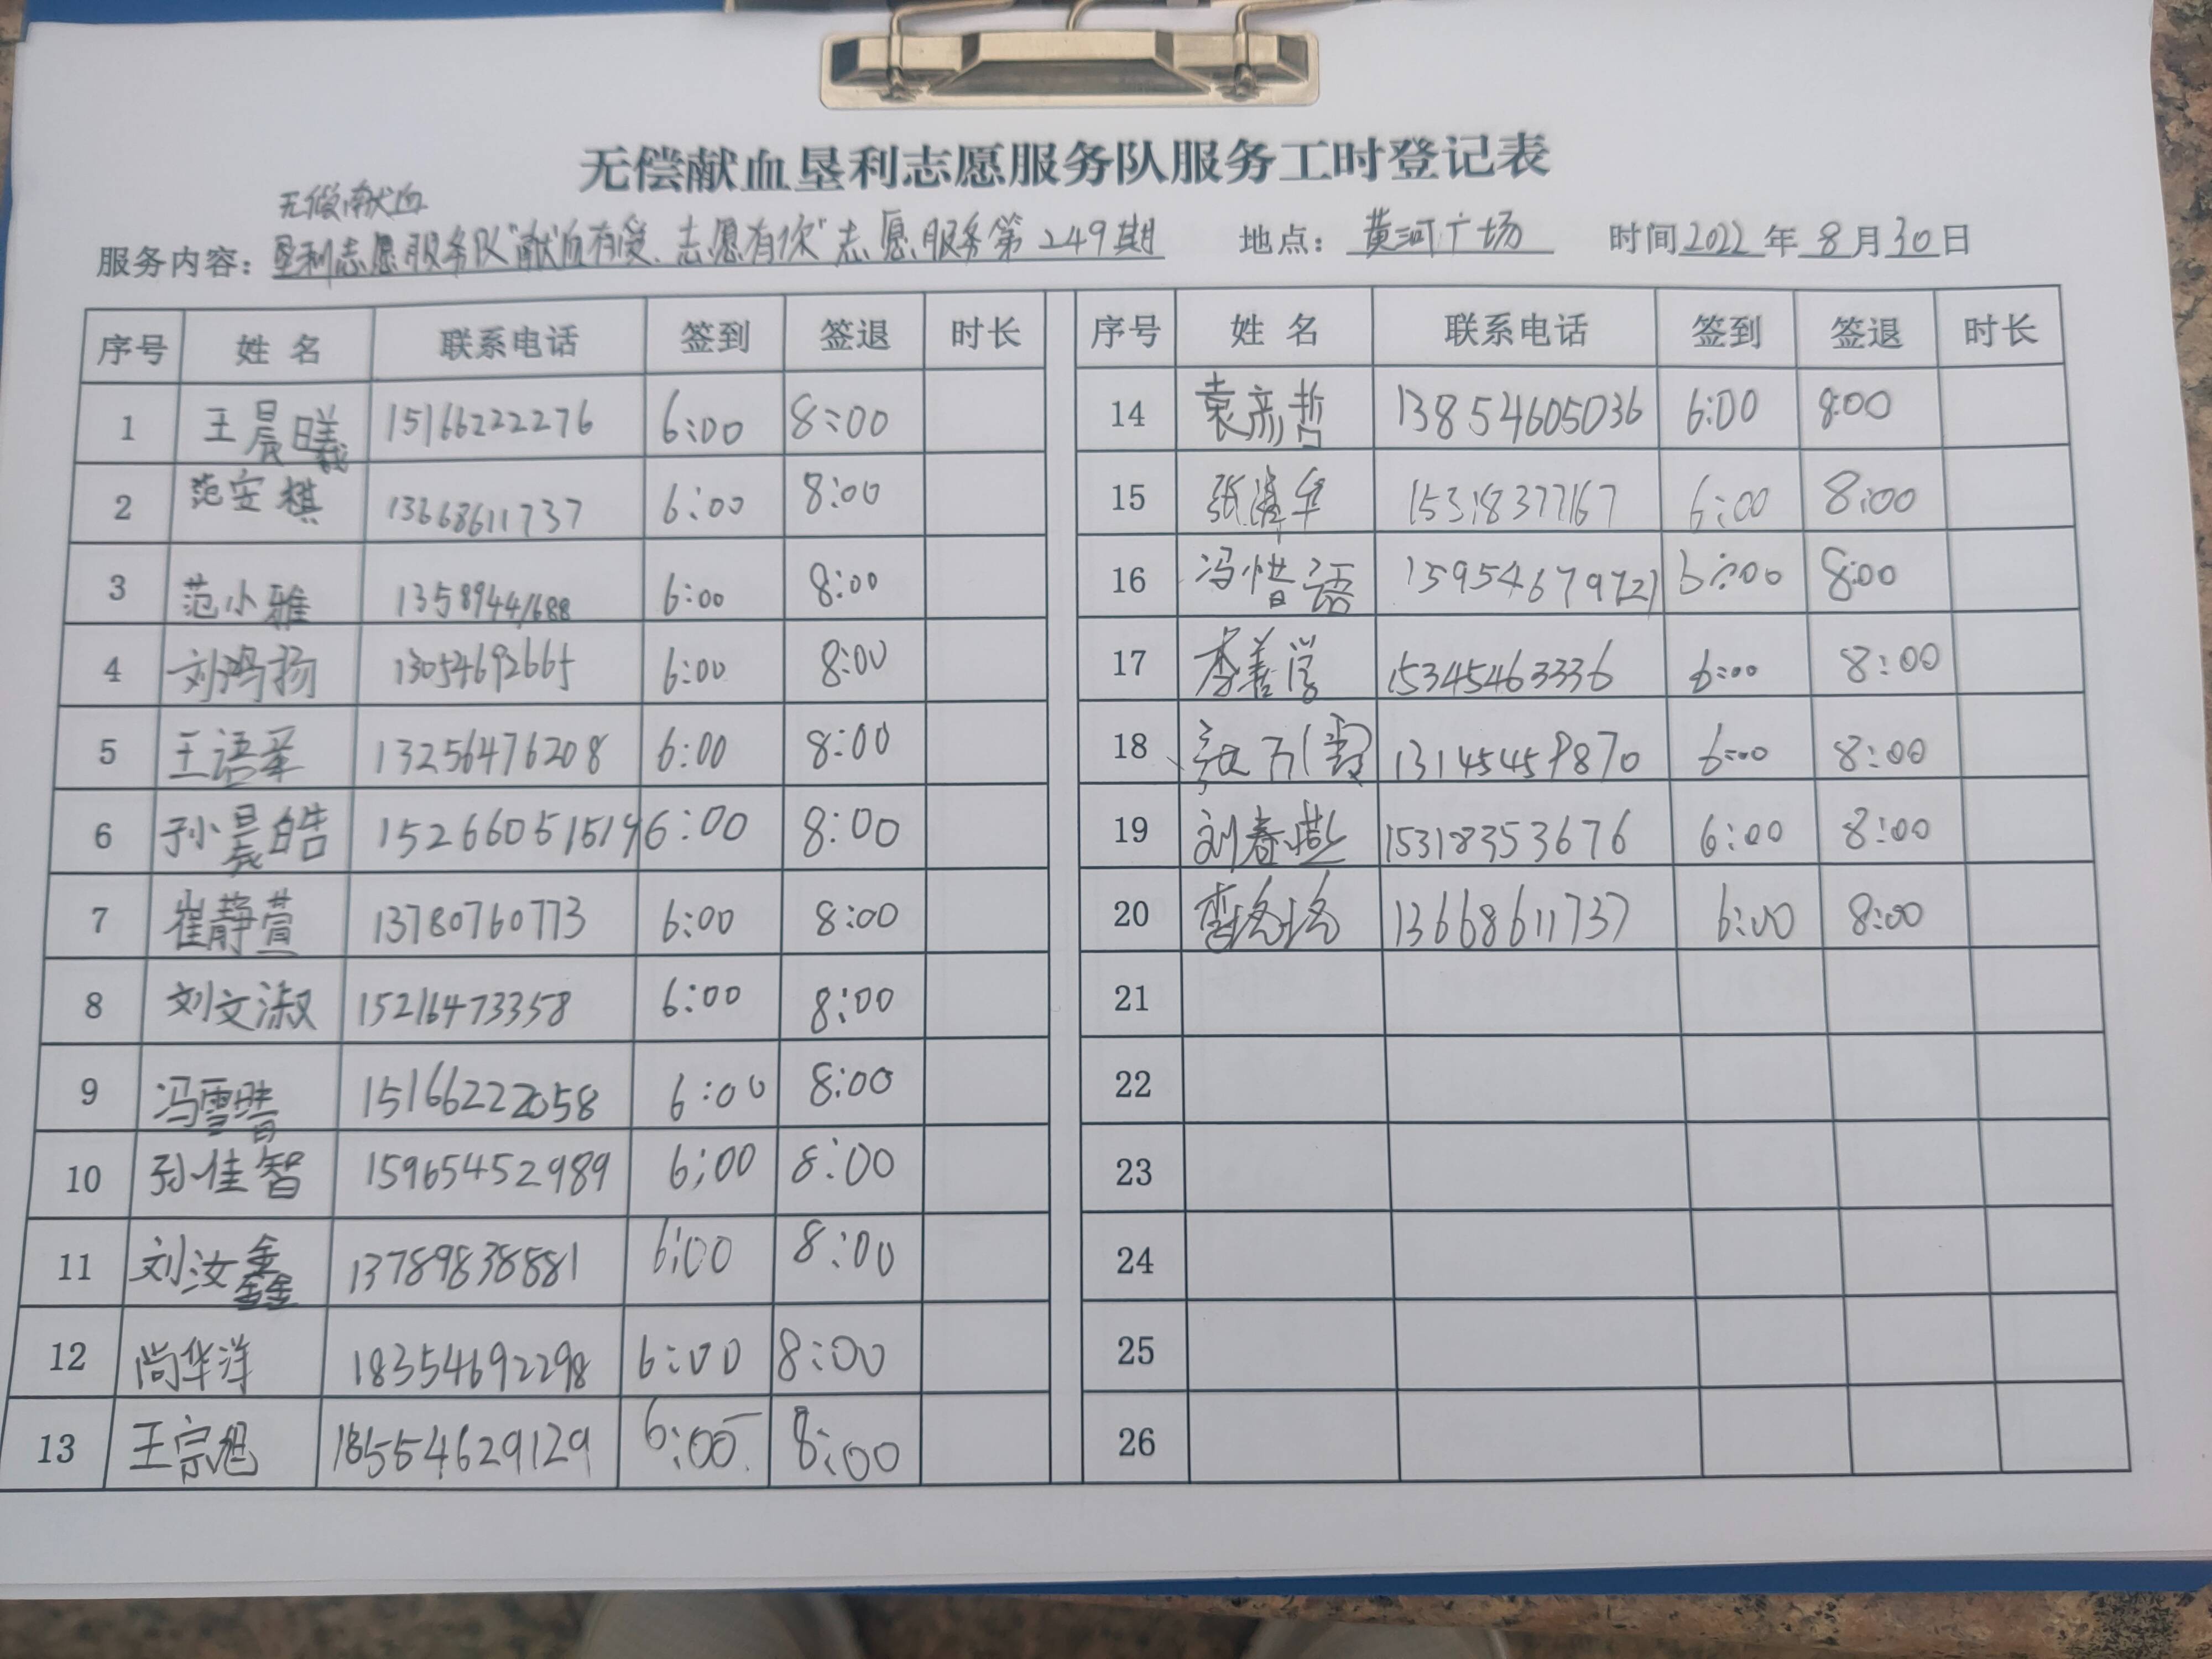 无偿献血垦利志愿服务队服务工时登记表
无偿献血
服务内容：垦利志愿服务队"献血有爱、志愿有你"志愿服务第249期 地点：黄河广场 时间2022年8月30日
序号 姓名 联系电话 签到 签退 时长 序号 姓名 联系电话 签到 签退 时长
1 王晨曦 15166222276 6:00 8:00 14 袁彦哲 13854605036 6:00 8:00
2 范安棋 13668611737 6:00 8:00 15 张清华 15318377167 6:00 8:00
3 范小雅 13589441688 6:00 8:00 16 冯惜语 15954679721 6:00 8:00
4 刘鸿扬 13054692665 6:00 8:00 17 李善学 15345463336 6:00 8:00
5 王语 13256476208 6:00 8:00 18 13145459870 6:00 8:00
6 孙晨皓 15266051519 6:00 8:00 19 刘春燕 15318353676 6:00 8:00
7 崔静萱 13780760773 6:00 8:00 20 李洛洛 13668611737 6:00 8:00
8 刘文淑 15216473358 6:00 8:00 21
9 冯雪晴 15166222058 6:00 8:00 22
10 孙佳智 15965452989 6:00 8:00 23
11 刘汝鑫 13789838881 6:00 8:00 24
12 尚华洋 18354692298 6:00 8:00 25
13 王宗旭 18554629129 6:00 8:00 26